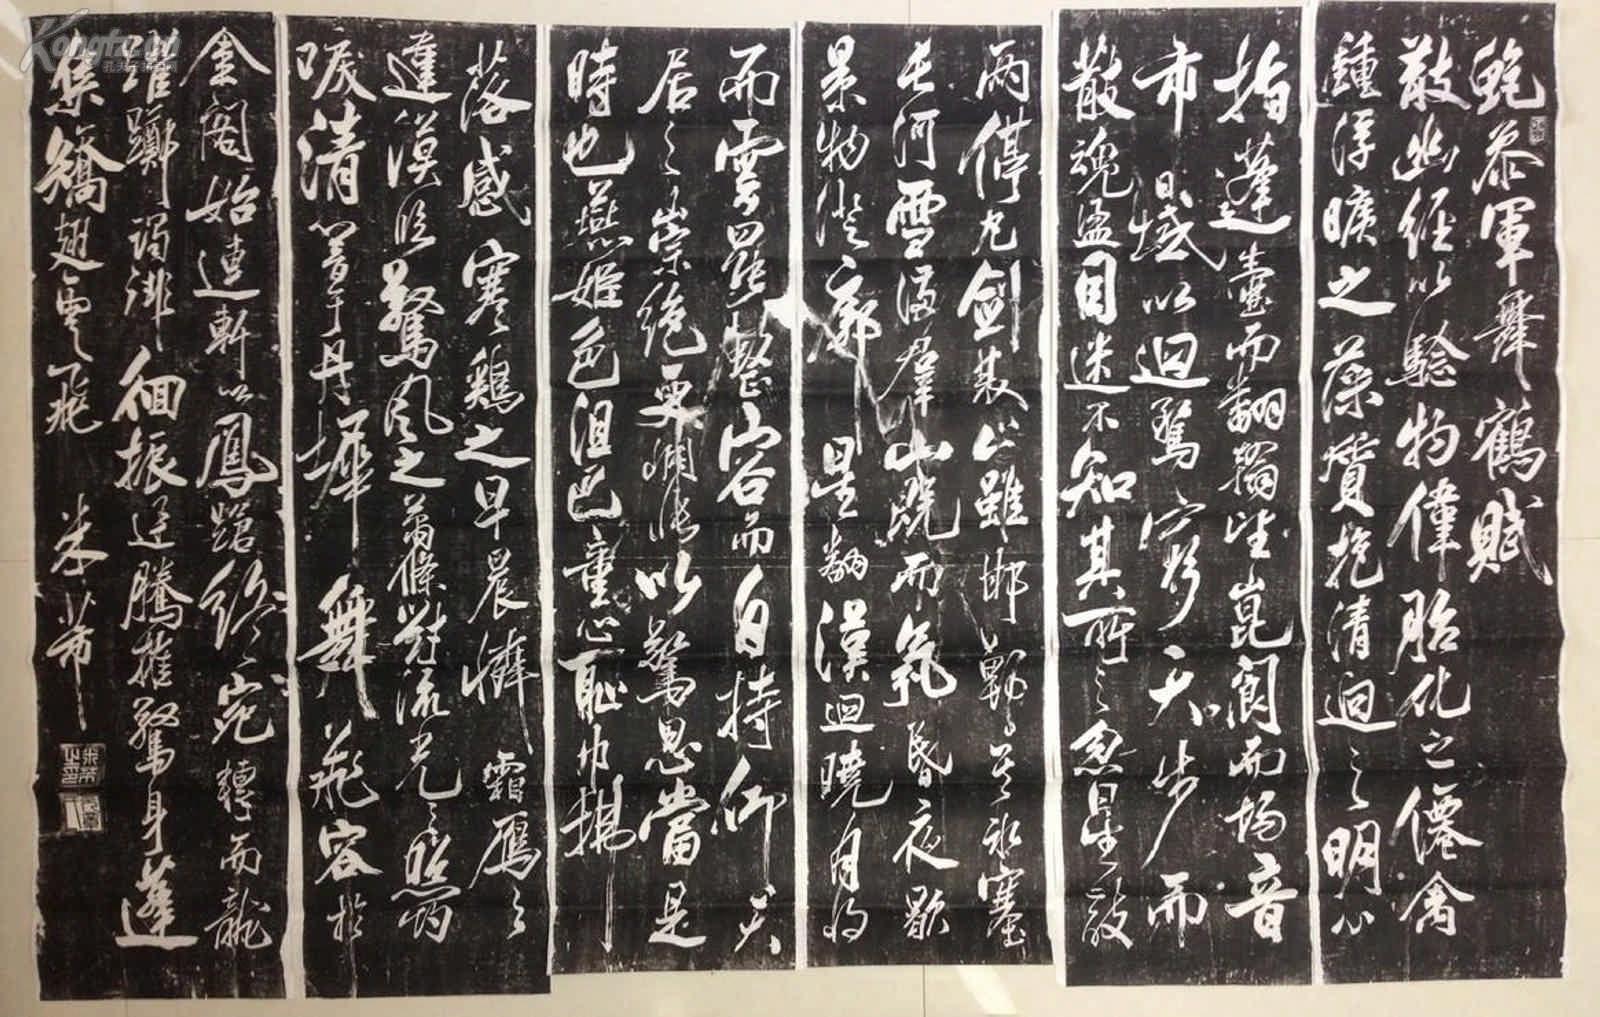 鮑參軍舞鶴賦
散幽經以驗物偉胎化之僊禽
鍾浮曠之藻質抱清迥之明心
指蓬壺而翻翰望崑閬而揚音
帀日域以迴騖窮天步而
散魂盪目迷不知其所之忽星離
兩停丸劍雙止雖邯鄲其冰塞
長河雪滿羣山既而氛昏夜歇
景物澄廓星翻漢迴曉月將
而雲罷整容而自持仰天
居之崇絕更惆悵以驚思當是
時也燕姬色沮巴童心恥巾拂
落感寒鷄之早晨憐霜鴈之
違漠臨驚風之蕭條對流光之照灼
唳清響于丹墀舞飛容於
金閣始連軒以鳳蹌終宛轉而龍
躍躑躅徘徊振迅騰摧驚身蓬
集矯翅雪飛 米芾